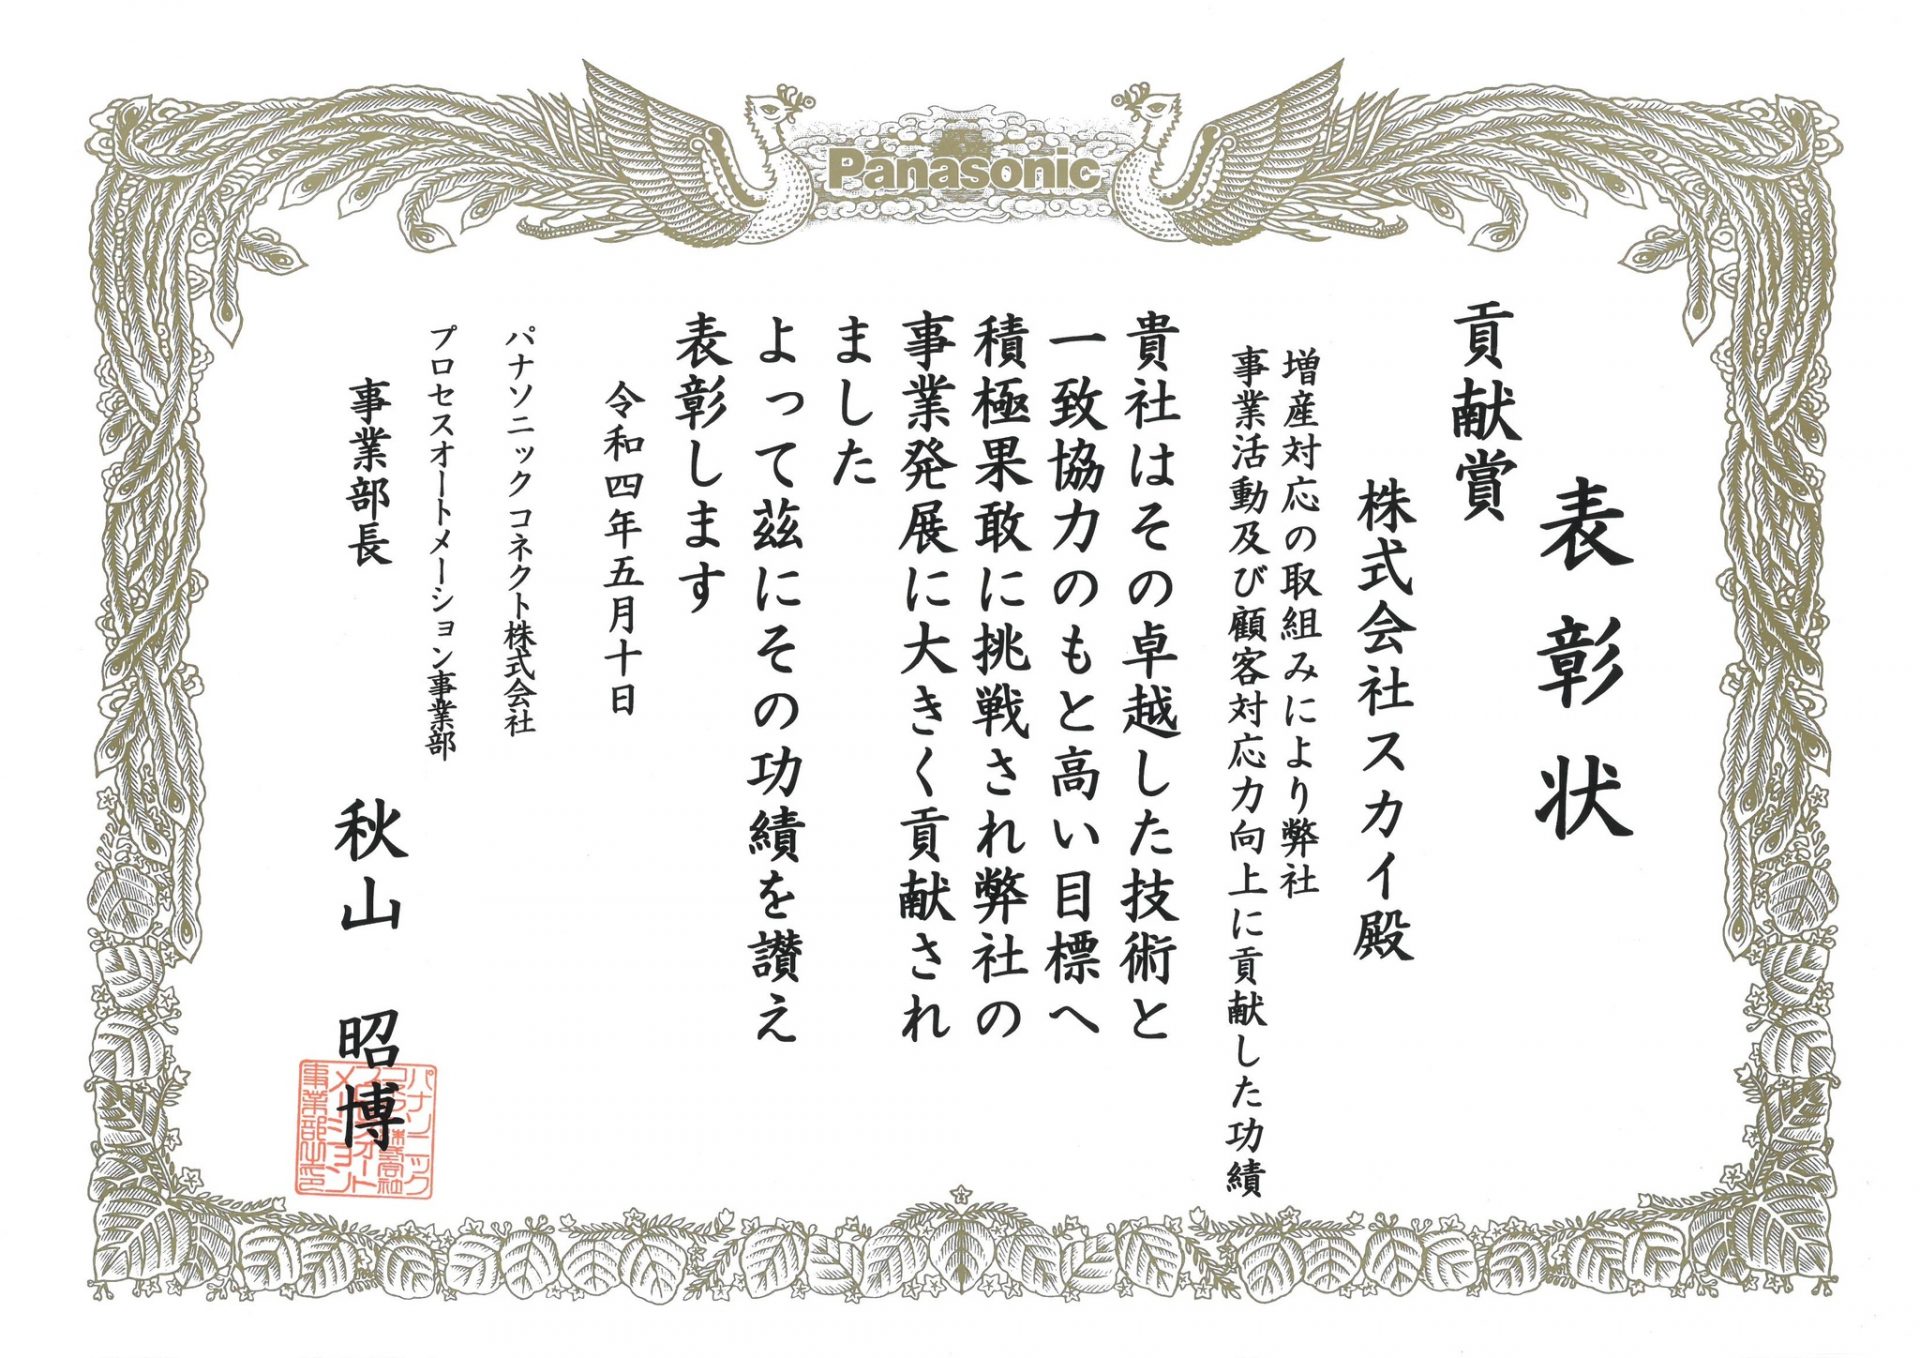 Panasonic
表彰状
貢献賞
株式会社スカイ殿
増産対応の取組みにより弊社
事業活動及び顧客対応力向上に貢献した功績
貴社はその卓越した技術と
一致協力のもと高い目標へ
積極果敢に挑戦され弊社の
事業発展に大きく貢献され
ました
よって茲にその功績を讃え
表彰します
令和四年五月十日
パナソニックコネクト株式会社
プロセスオートメーション事業部
事業部長 秋山 昭博